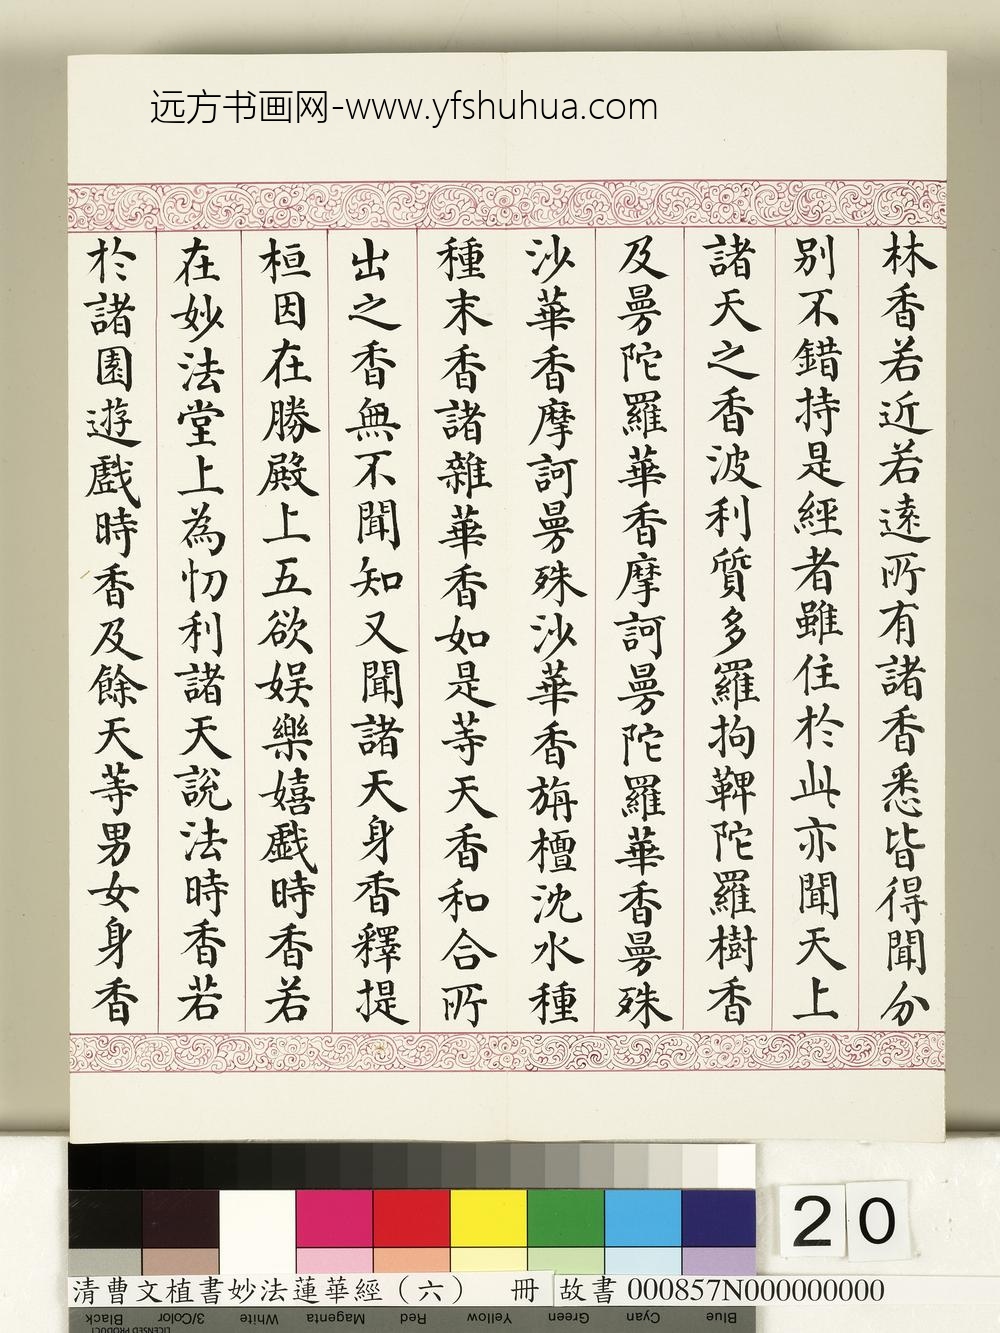 远方书画网-www.yfshuhua.com
林香若近若遠所有諸香悉皆得聞分
別不錯持是經者雖住於此亦聞天上
諸天之香波利質多羅拘鞞陀羅樹香
及曼陀羅華香摩訶曼陀羅華香曼殊
沙華香摩訶曼殊沙華香旃檀沈水種
種末香諸雜華香如是等天香和合所
出之香無不聞知又聞諸天身香釋提
桓因在勝殿上五欲娛樂嬉戲時香若
在妙法堂上為忉利諸天說法時香若
於諸園遊戲時香及餘天等男女身香
20
清曹文植書妙法蓮華經（六） 冊 故書 000857N000000000
Black 3/Color White Magenta Red Yellow Green Cyan Blue
LICENSED PRODUCT